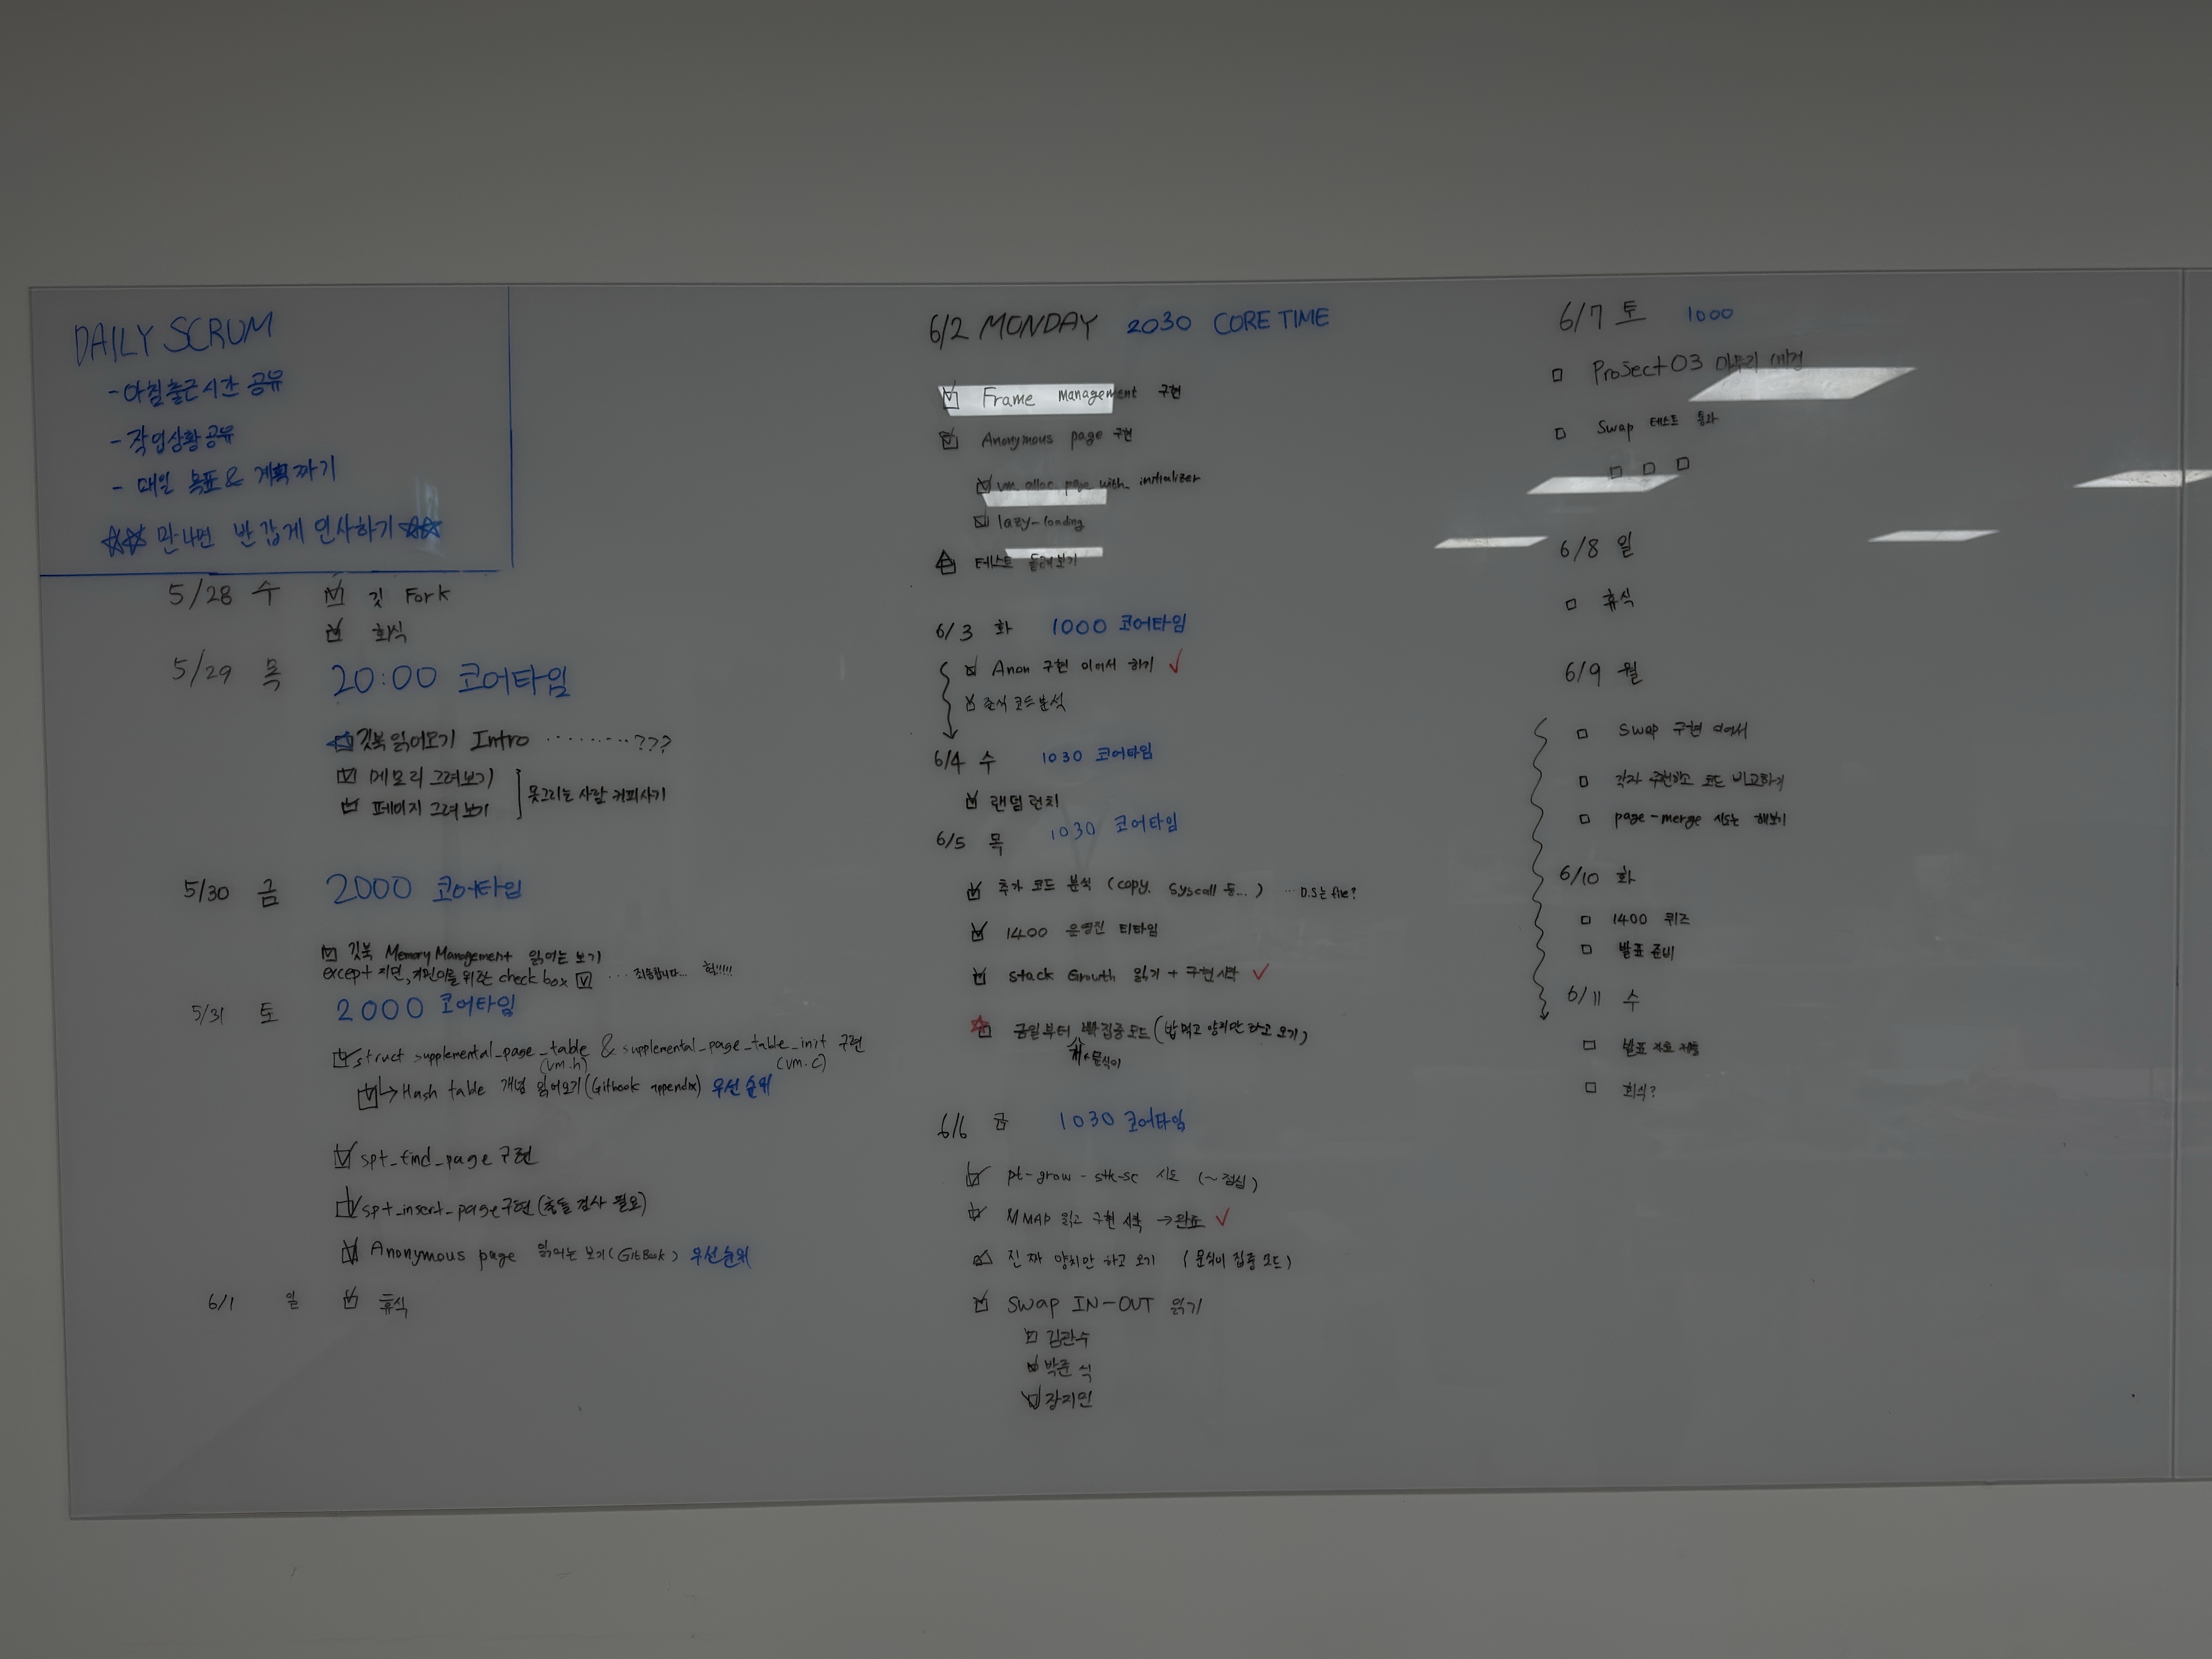 DAILY SCRUM
- 아침 출근 시간 공유
- 작업상황 공유
- 매일 목표 & 계획 짜기
☆☆ 만나면 반갑게 인사하기 ☆☆
5/28 수 ☑ 깃 Fork
☑ 회식
5/29 목 20:00 코어타임
깃북 읽어오기 Intro ·········???
☑ 메모리 그려보기
☑ 페이지 그려보기
못그리는 사람 커피사기
5/30 금 2000 코어타임
☑ 깃북 Memory Management 읽어는 보기
except 지인, 지인이를 위한 check box ☑ ... 죄송합니다... 헉!!!!!
5/31 토 2000 코어타임
☑ struct supplemental_page_table & supplemental_page_table_init 구현
(vm.h) (vm.c)
☑ → Hash table 개념 읽어오기 (Gitbook appendix) 우선순위
☑ spt_find_page 구현
☑ spt_insert_page 구현 (충돌 검사 필요)
☑ Anonymous page 읽어는 보기 (GitBook) 우선순위
6/1 일 ☑ 휴식
6/2 MONDAY 2030 CORE TIME
☑ Frame Management 구현
☑ Anonymous page 구현
☑ vm_alloc_page_with_initializer
☑ lazy-loading
테스트 돌려보기
6/3 화 1000 코어타임
☑ Anon 구현 이어서 하기 ✓
☑ 준식 코드 분석
6/4 수 1030 코어타임
☑ 랜덤 런치
6/5 목 1030 코어타임
☑ 추가 코드 분석 (copy, syscall 등...) ... D.S는 file?
☑ 1400 운영진 티타임
☑ Stack Growth 읽기 + 구현시작 ✓
금일부터 빡집중모드 (밥먹고 양치만 하고 오기)
문식이
6/6 금 1030 코어타임
☑ pt-grow-stk-sc 시도 (~점심)
☑ MMAP 읽고 구현 시작 → 완료 ✓
진짜 양치만 하고 오기 (문식이 집중 모드)
☑ Swap IN-OUT 읽기
☑ 김관수
☑ 박준식
☑ 장지인
6/7 토 1000
□ Project 03 마무리
□ Swap 테스트 통과
□ □ □
6/8 일
□ 휴식
6/9 월
□ Swap 구현 이어서
□ 각자 구현하고 코드 비교하기
□ page-merge 시도는 해보기
6/10 화
□ 1400 퀴즈
□ 발표 준비
6/11 수
□ 발표 자료 제출
□ 회식?